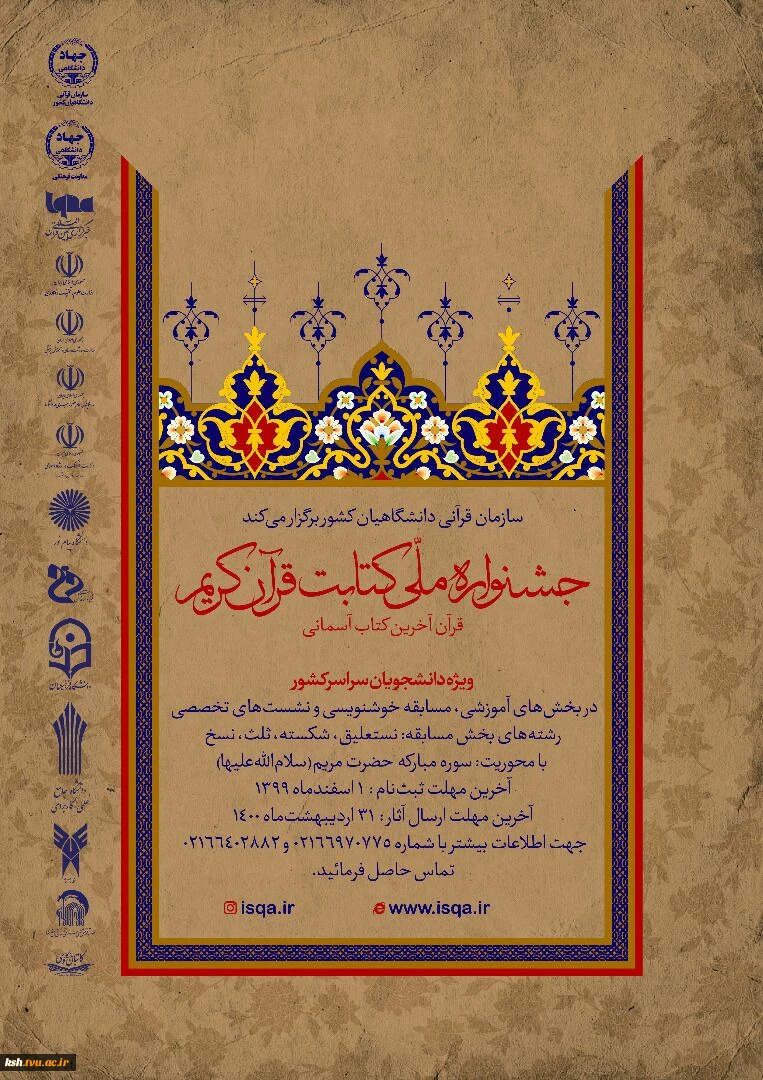 سازمان قرآنی دانشگاهیان کشور برگزار می‌کند
جشنواره ملّی کتابت قرآن کریم
قرآن آخرین کتاب آسمانی
ویژه دانشجویان سراسر کشور
در بخش‌های آموزشی، مسابقه خوشنویسی و نشست‌های تخصصی
رشته‌های بخش مسابقه: نستعلیق، شکسته، ثلث، نسخ
با محوریت: سوره مبارکه حضرت مریم (سلام‌الله‌علیها)
آخرین مهلت ثبت‌نام : ۱ اسفندماه ۱۳۹۹
آخرین مهلت ارسال آثار : ۳۱ اردیبهشت‌ماه ۱۴۰۰
جهت اطلاعات بیشتر با شماره ۰۲۱۶۶۹۷۰۷۷۵ و ۰۲۱۶۶۴۰۲۸۸۲
تماس حاصل فرمائید.
www.isqa.ir
isqa.ir
جهاد
دانشگاهی
سازمان قرآنی
دانشگاهیان کشور
جهاد
دانشگاهی
معاونت فرهنگی
iqna
دانشگاه پیام نور
دانشگاه فرهنگیان
دانشگاه جامع
علمی کاربردی
ksh.tvu.ac.ir